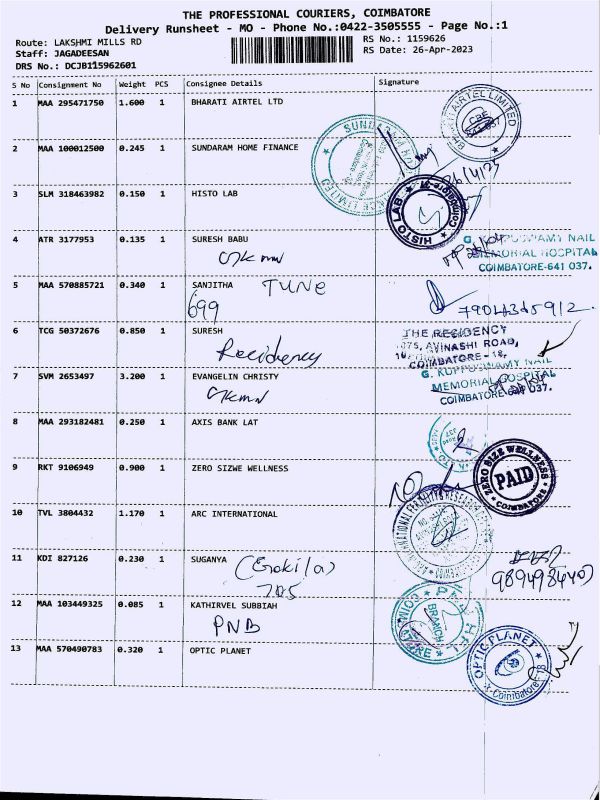 THE PROFESSIONAL COURIERS, COIMBATORE
Delivery Runsheet - MO - Phone No.:0422-3505555 - Page No.:1
Route: LAKSHMI MILLS RD
RS No.: 1159626
Staff: JAGADEESAN
RS Date: 26-Apr-2023
DRS No.: DCJB115962601
S No Consignment No Weight PCS Consignee Details Signature
1 MAA 295471750 1.600 1 BHARATI AIRTEL LTD
2 MAA 100012500 0.245 1 SUNDARAM HOME FINANCE
26/4/23
3 SLM 318463982 0.150 1 HISTO LAB
HISTO LAB
4 ATR 3177953 0.135 1 SURESH BABU
G. KUPPUSWAMY NAIDU
MEMORIAL HOSPITAL
COIMBATORE-641 037.
5 MAA 570885721 0.340 1 SANJITHA TUNE
699
7904365912
6 TCG 50372676 0.850 1 SURESH
Recidency
THE RESIDENCY
1075, AVINASHI ROAD,
COIMBATORE - 18,
7 SVM 2653497 3.200 1 EVANGELIN CHRISTY
G. KUPPUSWAMY NAIDU
MEMORIAL HOSPITAL
COIMBATORE-641 037.
8 MAA 293182481 0.250 1 AXIS BANK LAT
9 RKT 9106949 0.900 1 ZERO SIZWE WELLNESS
ZERO SIZE WELLNESS
PAID
COIMBATORE
10 TVL 3804432 1.170 1 ARC INTERNATIONAL
11 KDI 827126 0.230 1 SUGANYA
705
12 MAA 103449325 0.085 1 KATHIRVEL SUBBIAH
PNB
BRANCH
13 MAA 570490783 0.320 1 OPTIC PLANET
OPTIC PLANET
Coimbatore